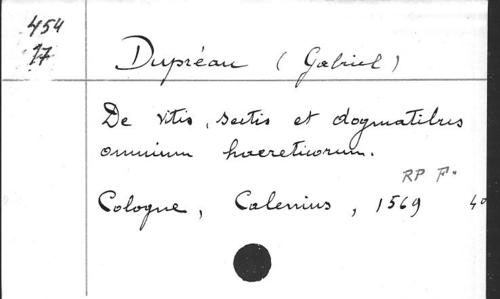 454
17
Dupréau (Gabriel)
De vitis, sectis et dogmatibus
omnium hoereticorum.
RP F.
Cologne, Calenius, 1569 40